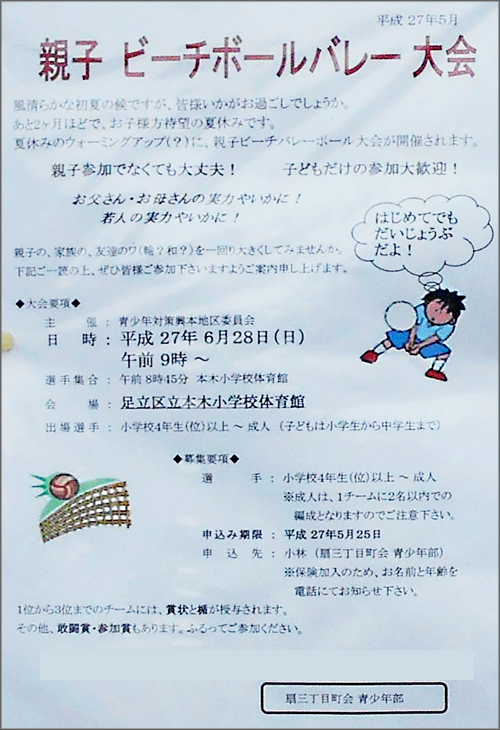 平成 27年5月
親子 ビーチボールバレー 大会
風清らかな初夏の候ですが、皆様いかがお過ごしでしょうか。
あと2ヶ月ほどで、お子様方待望の夏休みです。
夏休みのウォーミングアップ(?)に、親子ビーチバレーボール大会が開催されます。
親子参加でなくても大丈夫! 子どもだけの参加大歓迎!
お父さん・お母さんの実力やいかに!
若人の実力やいかに!
はじめてでも
だいじょうぶ
だよ!
親子の、家族の、友達のワ(輪?和?)を一回り大きくしてみませんか。
下記ご一読の上、ぜひ皆様ご参加下さいますようご案内申し上げます。
◆大会要項◆
主 催 : 青少年対策興本地区委員会
日 時 : 平成 27年 6月28日(日)
午前 9時 ~
選手集合 : 午前 8時45分 本木小学校体育館
会 場 : 足立区立本木小学校体育館
出場選手 : 小学校4年生(位)以上 ~ 成人 (子どもは小学生から中学生まで)
◆募集要項◆
選 手 : 小学校4年生(位)以上 ~ 成人
※成人は、1チームに2名以内での
編成となりますのでご注意下さい。
申込み期限 : 平成 27年5月25日
申 込 先 : 小林 (扇三丁目町会 青少年部)
※保険加入のため、お名前と年齢を
電話にてお知らせ下さい。
1位から3位までのチームには、賞状と楯が授与されます。
その他、敢闘賞・参加賞もあります。ふるってご参加ください。
扇三丁目町会 青少年部